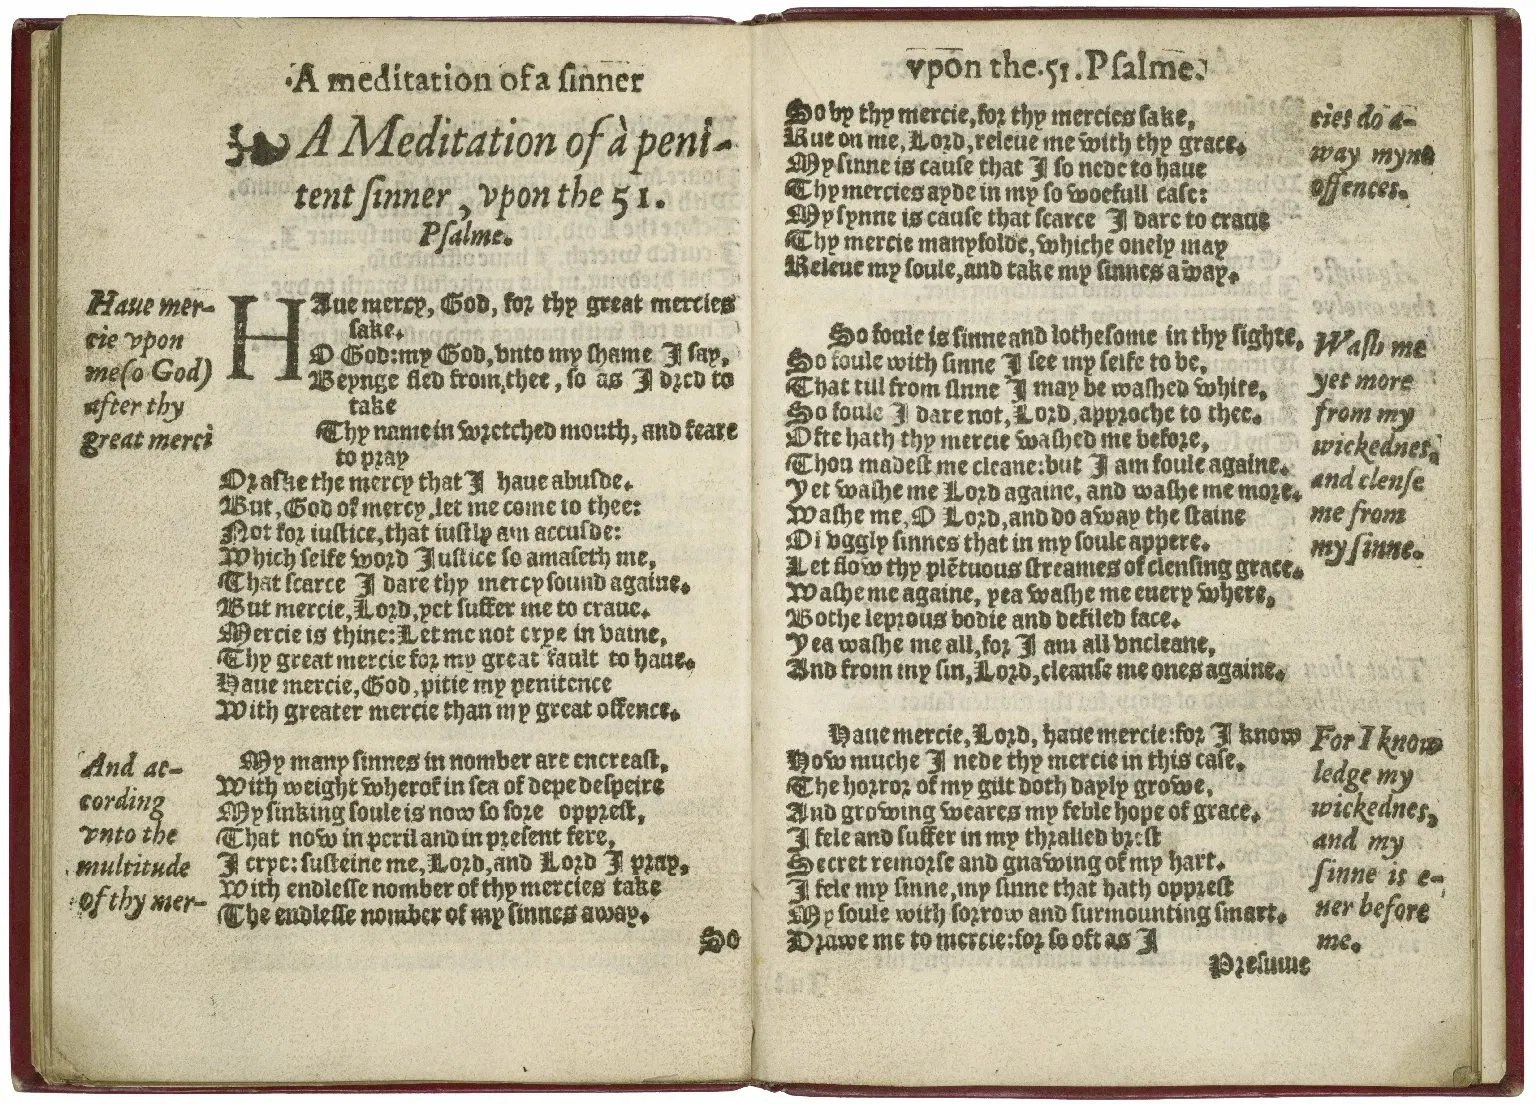 A meditation of a sinner
A Meditation of à peni-
tent sinner, vpon the 51.
Psalme.
Haue mer-
cie vpon
me (o God)
after thy
great merci
HAue mercy, God, for thy great mercies
sake.
O God: my God, vnto my shame I say,
Beynge fled from thee, so as I dred to
take
Thy name in wretched mouth, and feare
to pray
Or aske the mercy that I haue abusde.
But, God of mercy, let me come to thee:
Not for iustice, that iustly am accusde:
Which selfe word Iustice so amaseth me,
That scarce I dare thy mercy sound againe.
But mercie, Lord, yet suffer me to craue.
Mercie is thine: Let me not crye in vaine,
Thy great mercie for my great fault to haue.
Haue mercie, God, pitie my penitence
With greater mercie than my great offence.
And ac-
cording
vnto the
multitude
of thy mer-
My many sinnes in nomber are encreast,
With weight wherof in sea of depe despeire
My sinking soule is now so sore opprest,
That now in peril and in present fere,
I crye: susteine me, Lord, and Lord I pray,
With endlesse nomber of thy mercies take
The endlesse nomber of my sinnes away.
So
vpon the .51. Psalme.
So by thy mercie, for thy mercies sake,
Rue on me, Lord, releue me with thy grace.
My sinne is cause that I so nede to haue
Thy mercies ayde in my so woefull case:
My synne is cause that scarce I dare to craue
Thy mercie manyfolde, whiche onely may
Releue my soule, and take my sinnes away.
cies do a-
way myne
offences.
So foule is sinne and lothesome in thy sighte,
So foule with sinne I see my selfe to be,
That till from sinne I may be washed white,
So foule I dare not, Lord, approche to thee.
Ofte hath thy mercie washed me before,
Thou madest me cleane: but I am foule againe.
Yet washe me Lord againe, and washe me more.
Washe me, O Lord, and do away the staine
Of vggly sinnes that in my soule appere.
Let flow thy plẽtuous streames of clensing grace.
Washe me againe, yea washe me euery where,
Bothe leprous bodie and defiled face.
Yea washe me all, for I am all vncleane,
And from my sin, Lord, cleanse me ones againe.
Wash me
yet more
from my
wickednes,
and clense
me from
my sinne.
Haue mercie, Lord, haue mercie: for I know
How muche I nede thy mercie in this case.
The horror of my gilt doth dayly growe,
And growing weares my feble hope of grace.
I fele and suffer in my thralled brest
Secret remorse and gnawing of my hart.
I fele my sinne, my sinne that hath opprest
My soule with sorrow and surmounting smart.
Drawe me to mercie: for so oft as I
Presume
For I know
ledge my
wickednes,
and my
sinne is e-
uer before
me.